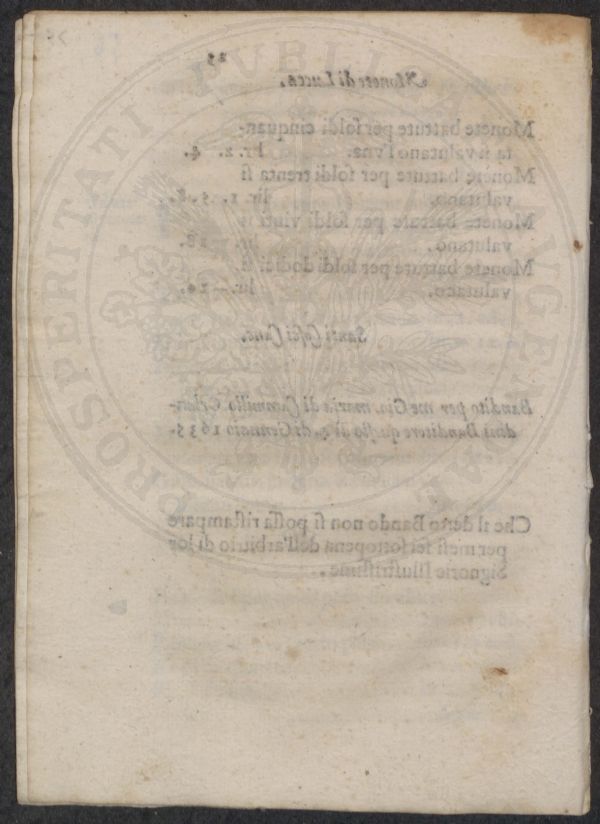 PROSPERITATI PVBLICAE AVGENDAE
25
Monete di Lucca.
Monete battute per soldi cinquan-
ta si valutano l'vna. lir. 2. 4.
Monete battute per soldi trenta si
valutano. lir. 1. 5. 8.
Monete battute per soldi vinti si
valutano.
Monete battute per soldi dodici si
valutano.
Santi Cosci Canc.
Bandito per me Gio. maria di Cammillo
dini Banditore questo dì 4. di Gennaio 1635.
Che il detto Bando non si possa ristampare
per mesi sei sotto pena dell'arbitrio di lor
Signorie Illustrissime.